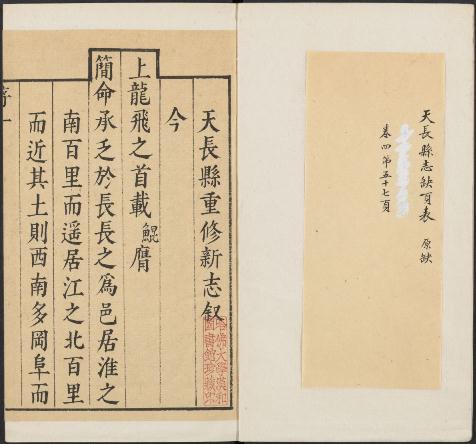 天長縣志缺頁表 原缺
卷四第五十七頁
天長縣重修新志叙
今
上龍飛之首載鯤膺
簡命承乏於長長之爲邑居淮之
南百里而遥居江之北百里
而近其土則西南多岡阜而
哈佛大學漢和
圖書館珍藏印
序一